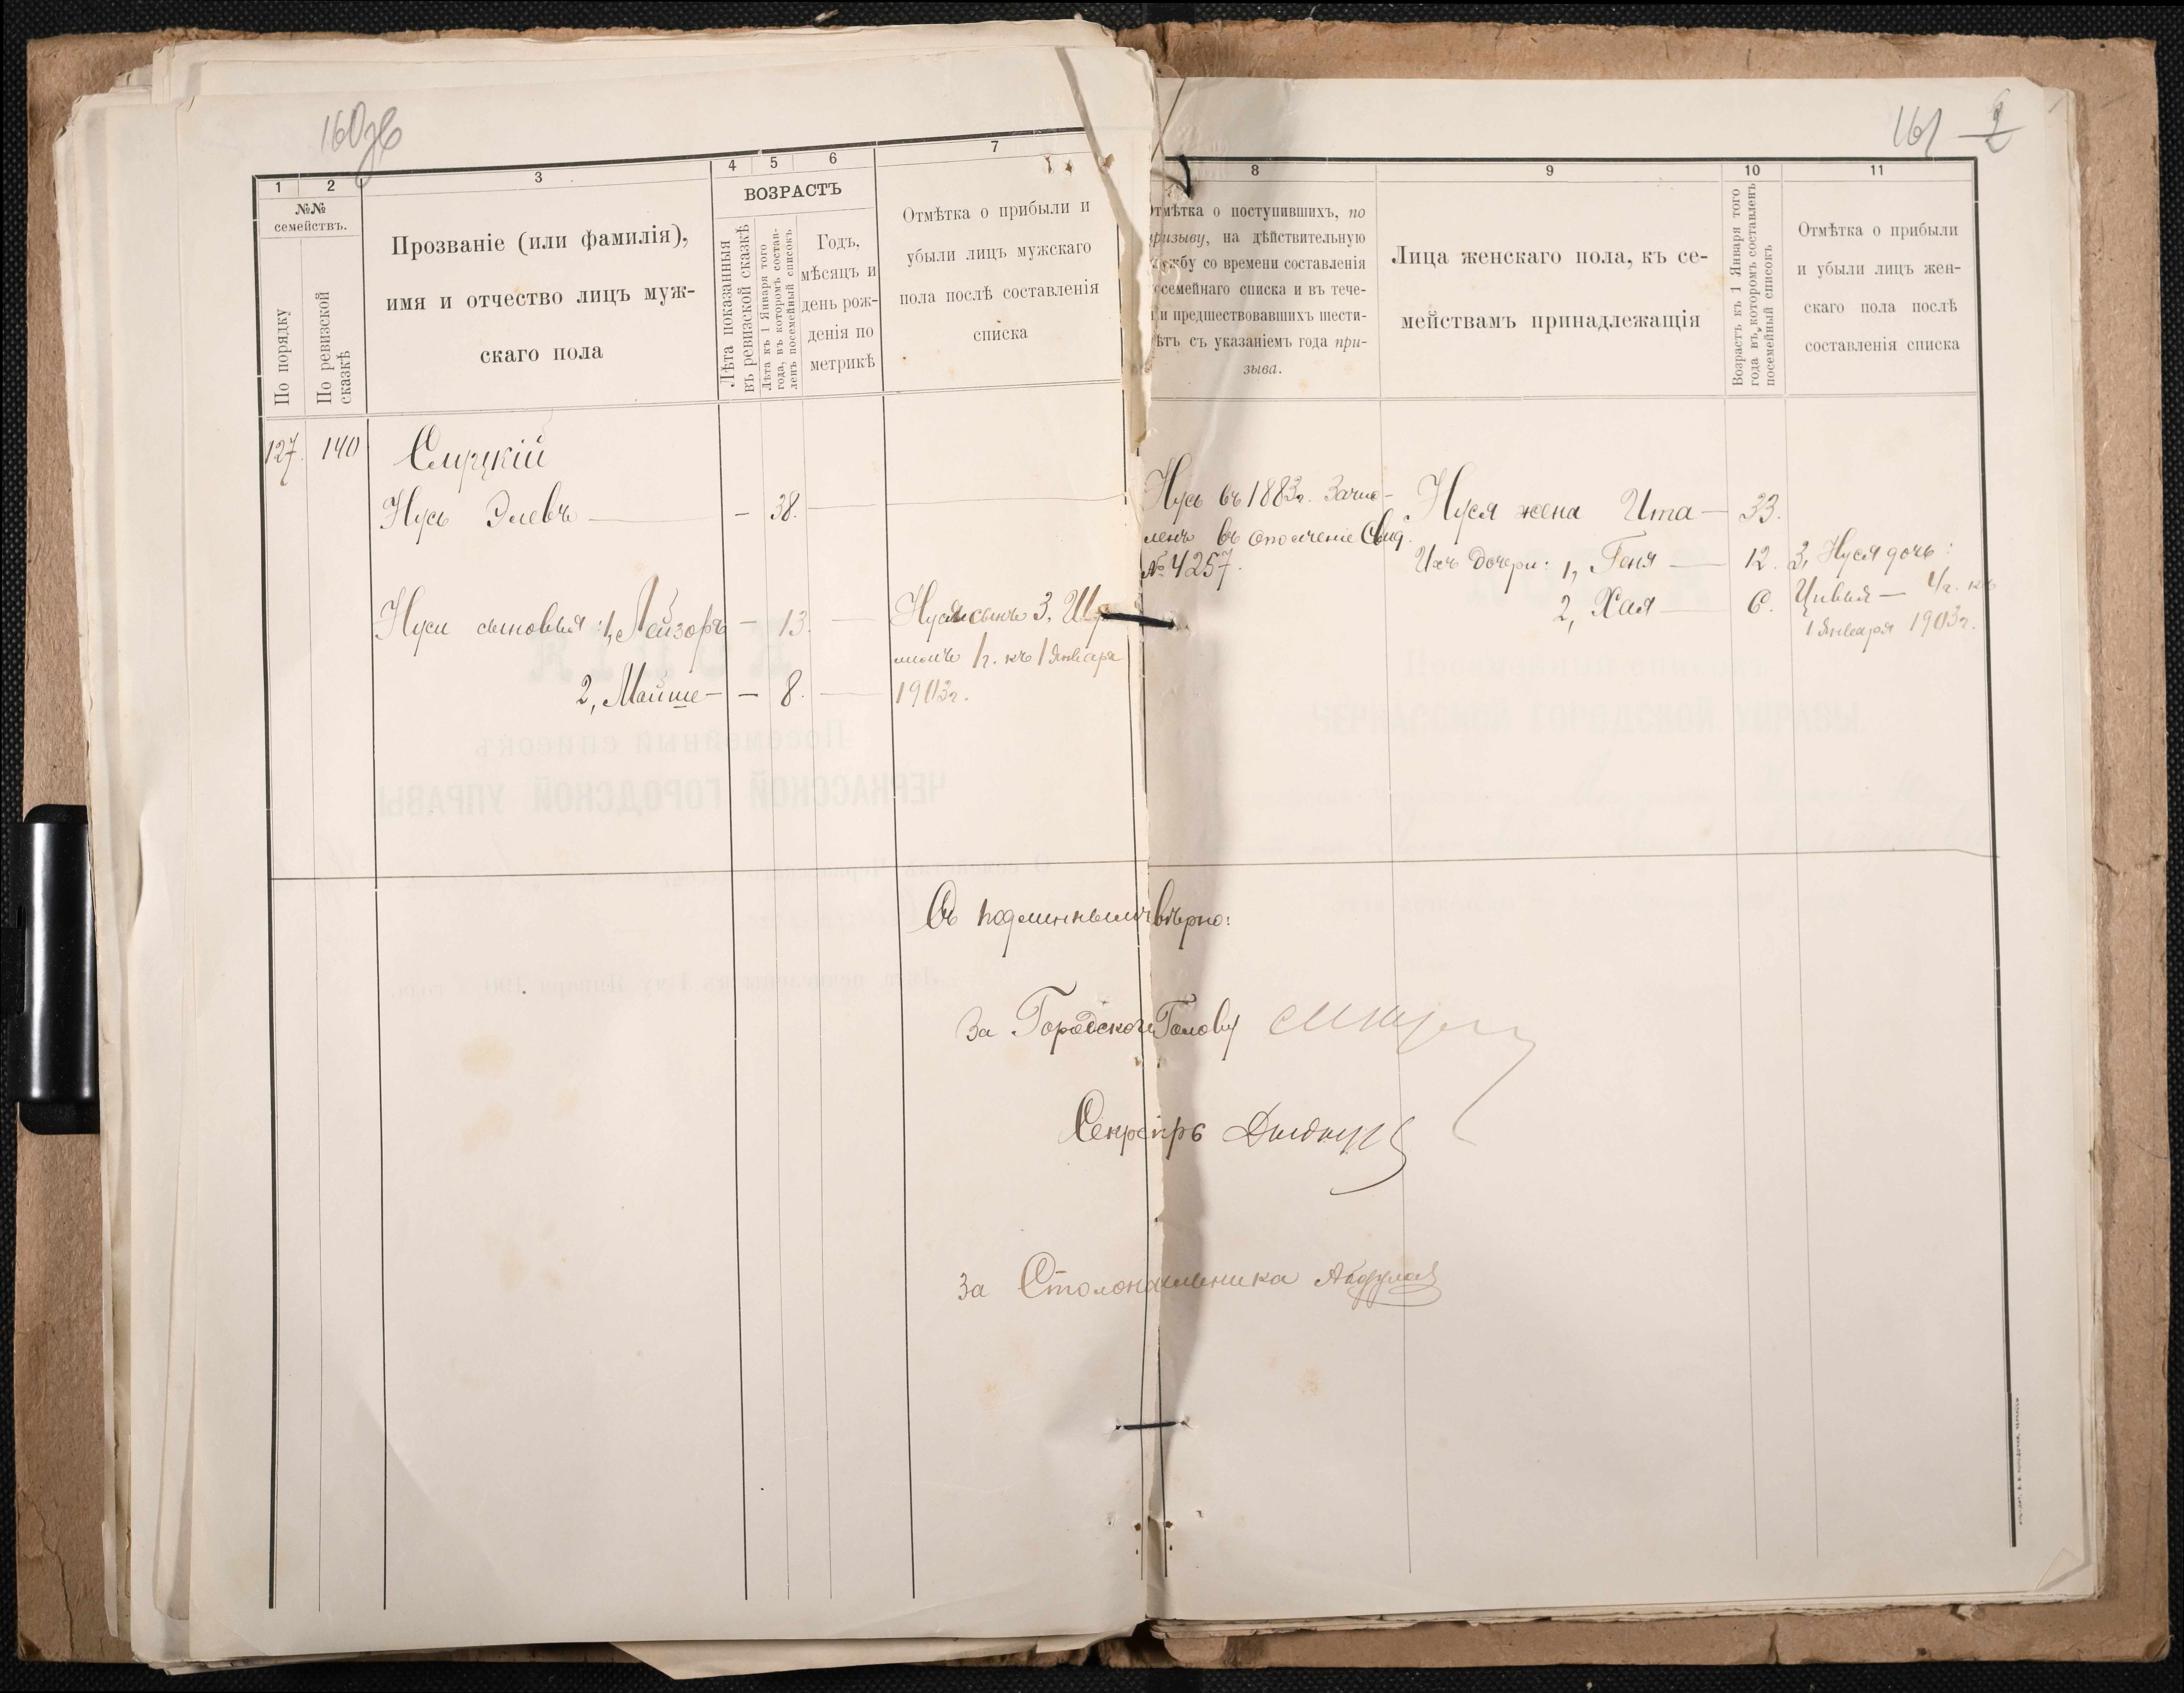 160 об
161
2
1
2
3
4
5
6
7
№№
семействъ.
По порядку
По ревизской
сказкѣ
Прозваніе (или фамилія),
имя и отчество лицъ муж-
скаго пола
ВОЗРАСТЪ
Лѣта показанныя
въ ревизской сказкѣ
Лѣта къ 1 Января того
года, въ которомъ состав-
ленъ посемейный списокъ
Годъ,
мѣсяцъ и
день рож-
денія по
метрикѣ
Отмѣтка о прибыли и
убыли лицъ мужскаго
пола послѣ составленія
списка
8
9
10
11
Отмѣтка о поступившихъ, по
призыву, на дѣйствительную
службу со времени составленія
посемейнаго списка и въ тече-
и предшествовавшихъ шести-
лѣтъ съ указаніемъ года при-
зыва.
Лица женскаго пола, къ се-
мействамъ принадлежащія
Возрастъ къ 1 Января того
года въ которомъ составленъ
посемейный списокъ
Отмѣтка о прибыли
и убыли лицъ жен-
скаго пола послѣ
составленія списка
127. 140 Слуцкій
Нусь Элевъ — — 38. —
Нуси сыновья: 1, Лейзоръ — 13. —
2, Майше — — 8. —
Нуся сынъ 3,
1 г. къ 1 Января
1903 г.
Нусь въ 1883 г. Зачис-
ленъ въ ополченіе Свид.
№ 4257.
Нуся жена Ита — 33.
Ихъ дочери: 1, Геня — 12.
2, Хая — 6.
3, Нуся дочь:
Цивья — 4 г. къ
1 Января 1903 г.
Съ подлиннымъ вѣрно:
За Городского Голову
Секретарь
За Столоначальника
КОПІЯ
Посемейный списокъ
ЧЕРКАССКОЙ ГОРОДСКОЙ УПРАВЫ